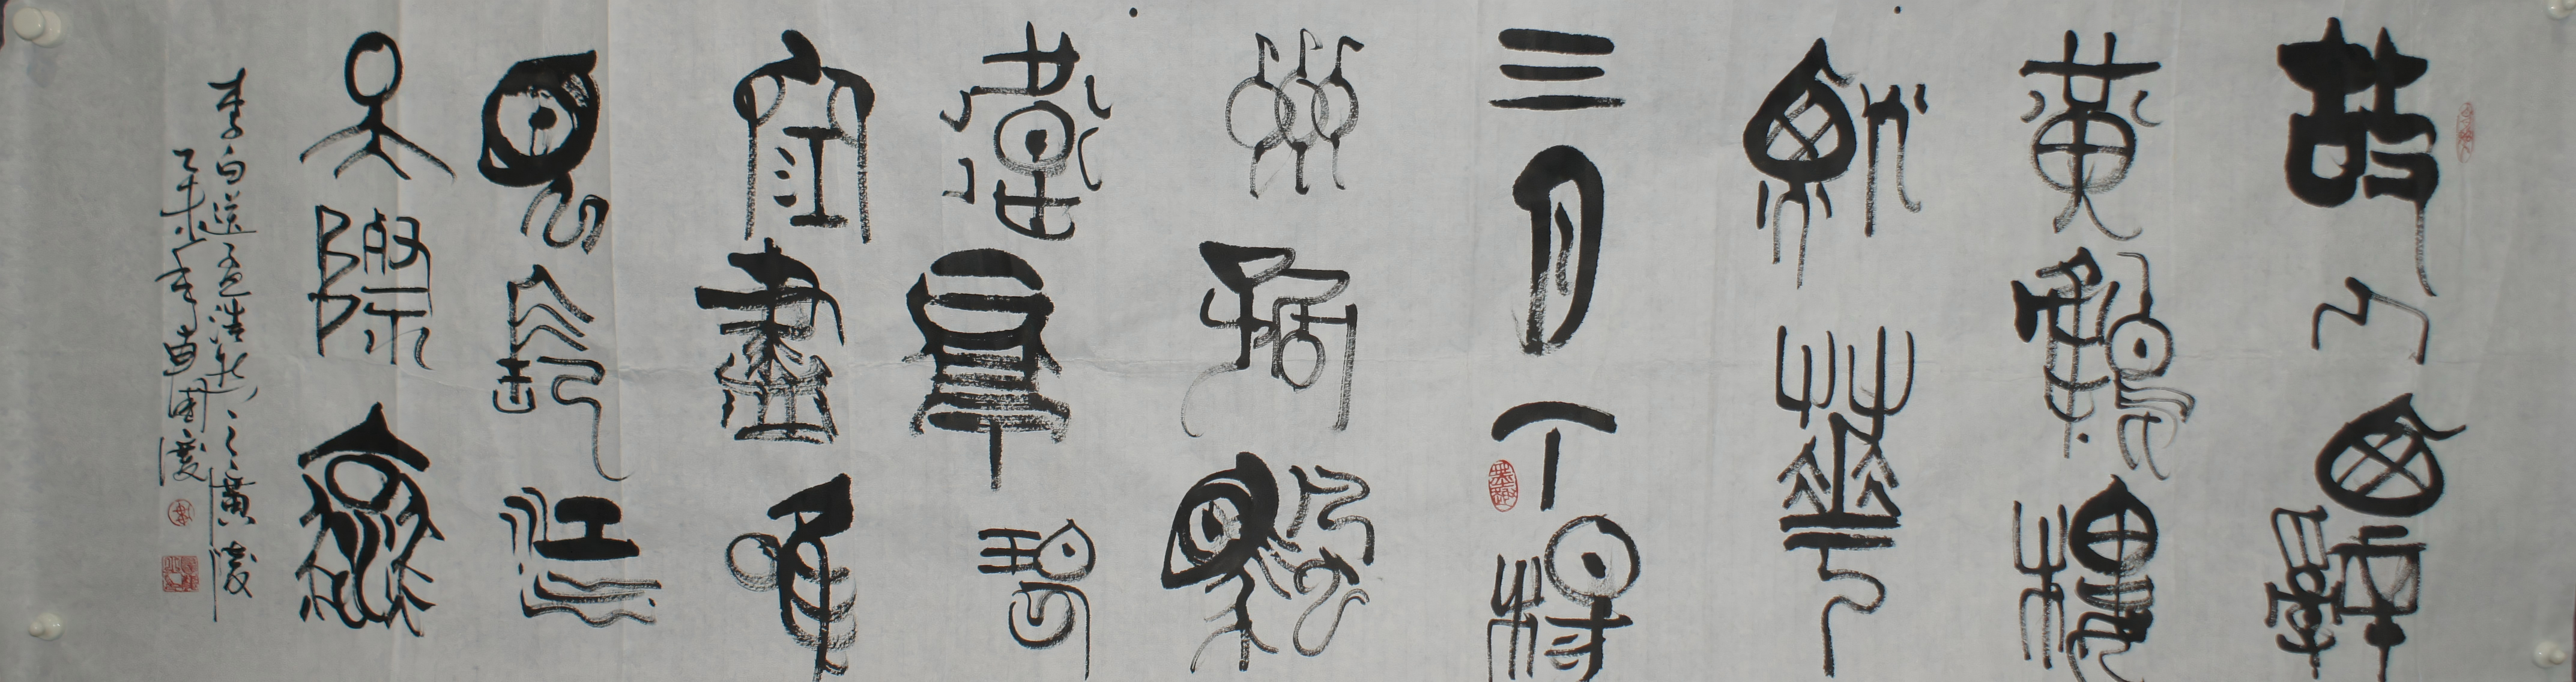 故人西辭
黃鶴樓
煙華
三月下楊
州孤帆
遠影碧
空盡唯
見長江
天際流
李白送孟浩然之廣陵
乙未年